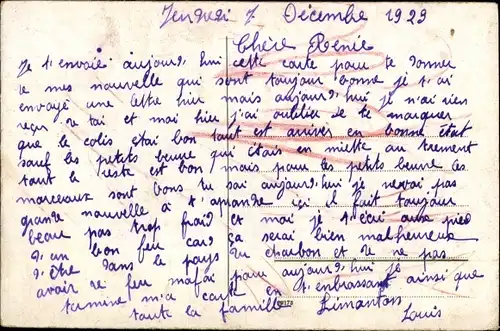 Vendredi 7 Décembre 1923
Chère Renée
Je t'envoie aujourd'hui cette carte pour te donner
de mes nouvelle qui sont toujour bonne je t'ai
envoyé une lettre hier mais aujourd'hui je n'ai rien
reçu de toi et moi hier j'ai oublier de te marquer
que le colis étai bon tout est arriver en bonne état
sauf les petits beurre qui étais en miette autrement
tout le reste est bon mais pour les petits beurre les
morceaux sont bons tu sai aujourd'hui je n'ai pas
grande nouvelle à t'apprendre ici il fait toujour
beau pas trop froid et moi je t'écri aux pied
d'un bon feu car ça serai bien malheureux
d'être dans le pays du charbon et de ne pas
avoir de feu pour aujourd'hui je
termine ma carte en t'enbrassant ainsi que
toute la famille
Louis